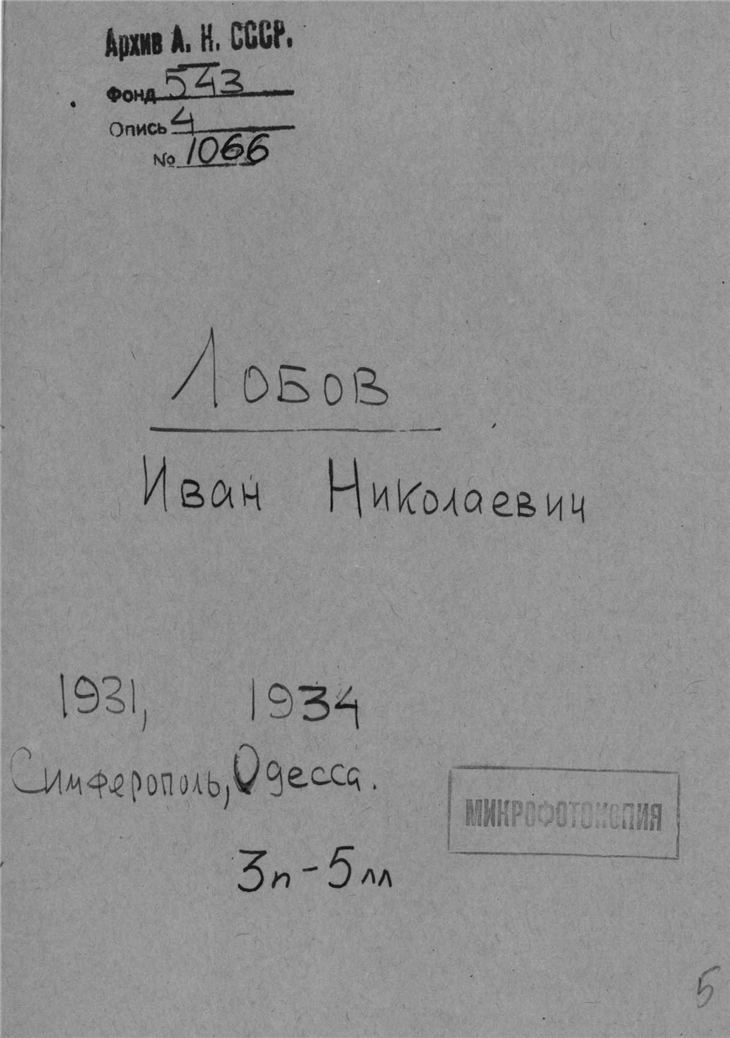 Архив А. Н. СССР.
Фонд 543
Опись 4
№ 1066
Лобов
Иван Николаевич
1931, 1934
Симферополь, Одесса.
МИКРОФОТОКОПИЯ
3п-5лл
5